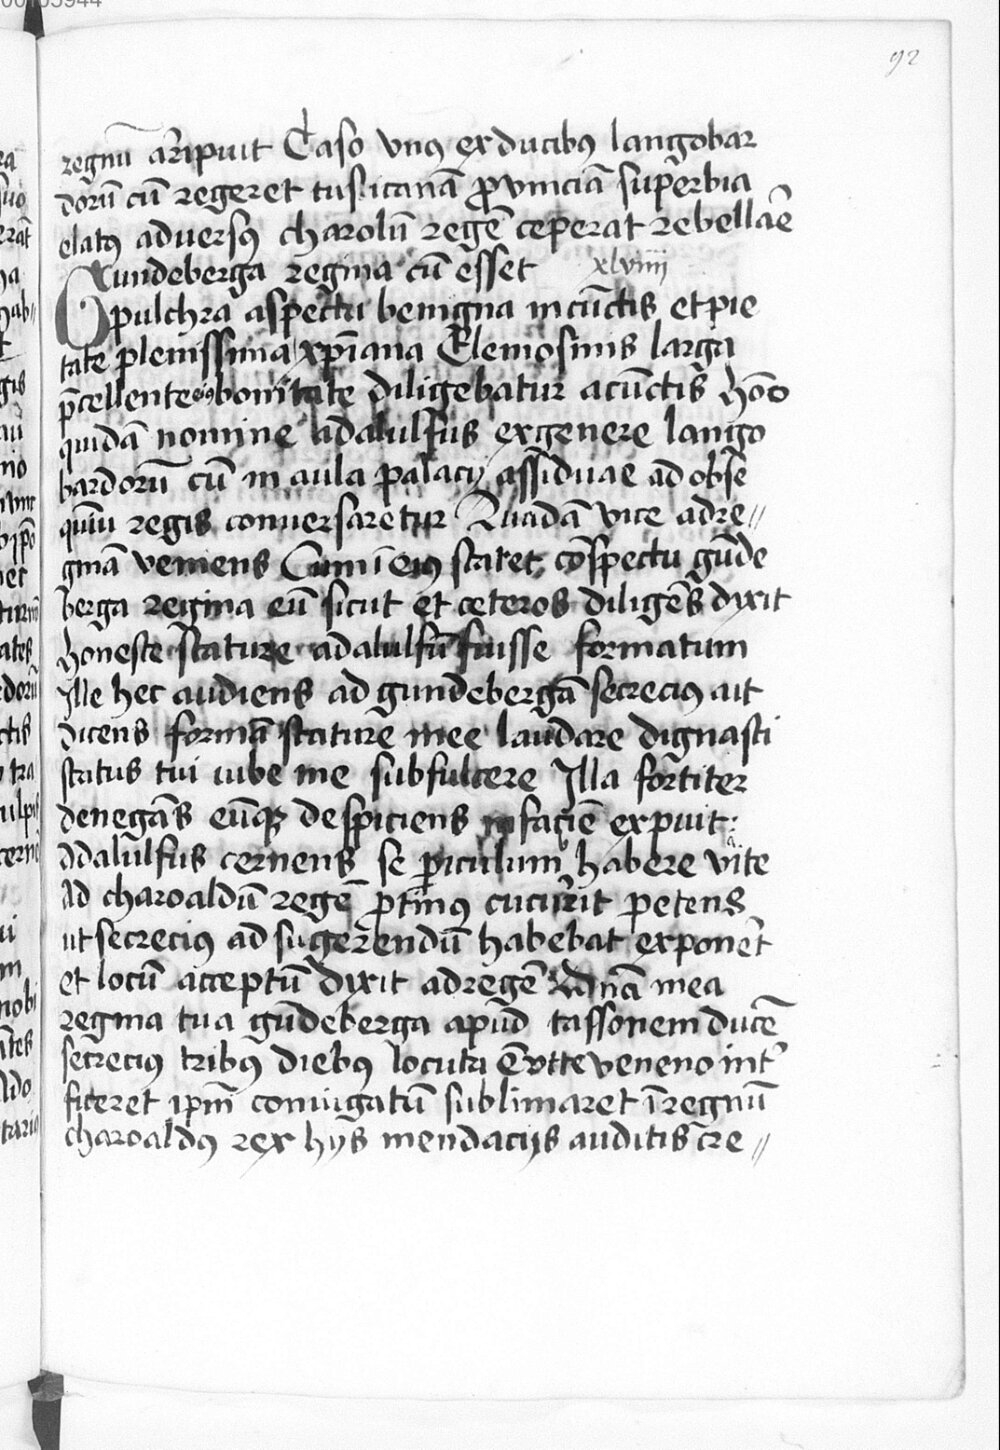 92
regnū arripuit Caso vnꝰ ex ducibꝰ langobar
dorū cū regeret tuscanā ꝓvinciā superbia
elatꝰ adversꝰ charolū regē ceperat rebellāe
Gundeberga regina cū esset xlviiii
pulchra aspectu benigna in cūctis et pie
tate plenissima xp̄iana Elemosinis larga
p̄cellente eiꝰ bonitate diligebatur a cūctis hōo
quidā nomine adalulfus ex genere lango
bardorū cū in aula palacij assiduae ad obse
quiū regis conuersaretur Quadā vice ad re〃
ginā veniens Cum ī eiꝰ staret cōspectu gūde
berga regina eū sicut et ceteros diligēs dixit
honeste stature adalulfū fuisse formatum
Ille hec audiens ad gundebergā secreciꝰ ait
dicens formā stature mee laudare dignasti
status tui iube me subfulcere Illa fortiter
denegās eūqꝫ despiciens in faciē expuit
Adalulfus cernens se ꝑiculum habere vite
ad charoaldū regē ꝓtinꝰ cucurrit petens
ut secreciꝰ ad sugerendū habebat exponēt
et locū acceptū dixit ad regē dn̄a mea
regina tua gūdeberga apud tassonem ducē
secreciꝰ tribꝰ diebꝰ locuta E vt te veneno int̉
ficeret ip̄m coniugatū sublimaret ī regnū
charoaldꝰ rex hijs mendacijs auditis cre〃